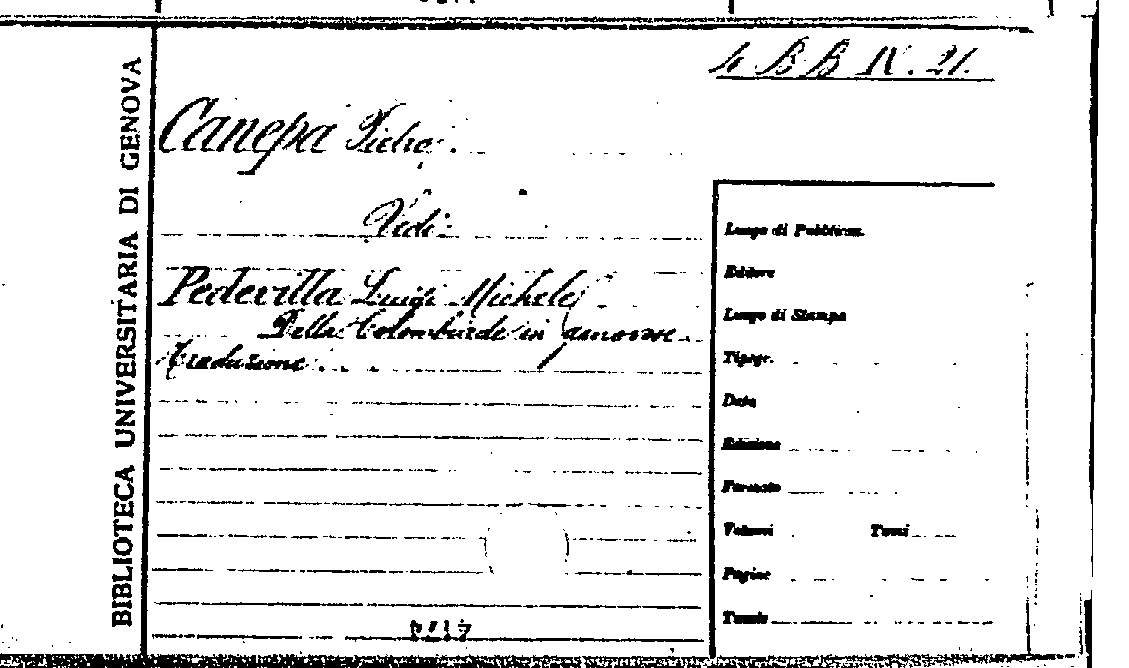 BIBLIOTECA UNIVERSITARIA DI GENOVA
4 BB IV. 21.
Canepa Pietro.
Vedi:
Pedevilla Luigi Michele
Della Colombiade in genovese
traduzione
Luogo di Pubblicaz.
Editore
Luogo di Stampa
Tipogr.
Data
Edizione
Formato
Volumi Tomi
Pagine
Tavole